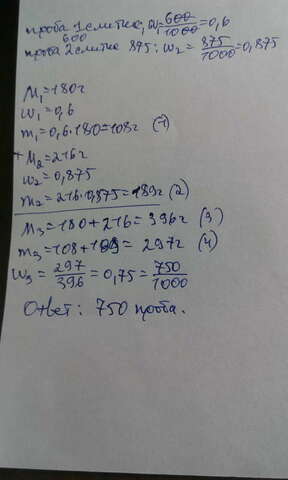 проба 1 слитка, ω₁=600/1000=0,6
600
проба 2 слитка 875: ω₂ = 875/1000=0,875
M₁=180г
ω₁=0,6
m₁=0,6·180=108г (1)
+ M₂=216г
ω₂=0,875
m₂=216·0,875=189г (2)
M₃=180+216=396г (3)
m₃=108+189= 297г (4)
ω₃= 297/396 =0,75= 750/1000
Ответ: 750 проба.